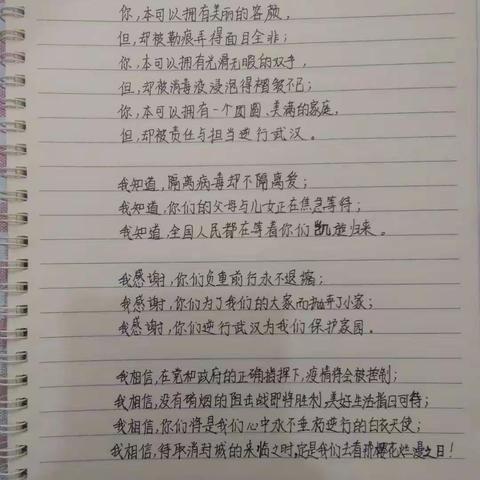 你,本可以拥有美丽的容颜,
但,却被勒痕弄得面目全非;
你,本可以拥有光滑无暇的双手,
但,却被消毒液浸泡得褶皱不已;
你,本可以拥有一个圆圆、美满的家庭,
但,却被责任与担当逆行武汉。
我知道,隔离病毒却不隔离爱;
我知道,你们的父母与儿女正在焦急等待;
我知道,全国人民都在等着你们凯旋归来。
我感谢,你们负重前行永不退缩;
我感谢,你们为了我们的大家而抛弃了小家;
我感谢,你们逆行武汉为我们保护家园。
我相信,在党和政府的正确指挥下,疫情将会被控制;
我相信,没有硝烟的阻击战即将胜利,美好生活指日可待;
我相信,你们将是我们心中永不垂朽逆行的白衣天使;
我相信,待取消封城的来临之时,定是我们去看樱花烂漫之日!